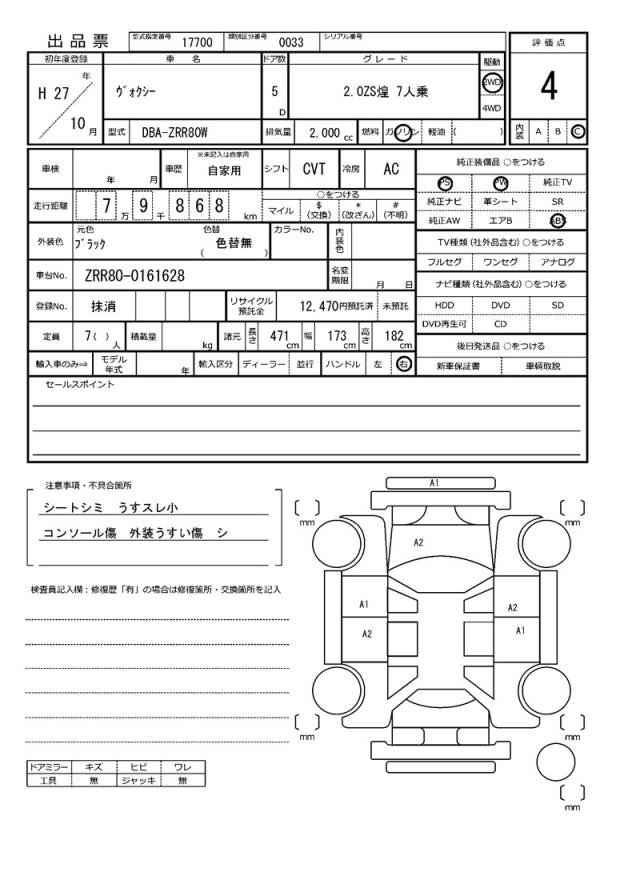 出品票 型式指定番号 17700 類別区分番号 0033 シリアル番号
評価点
4
内装 A B C
初年度登録 車名 ドア数 グレード 駆動
H 27 年 10 月
ヴォクシー 5 D 2.0ZS煌 7人乗 2WD
4WD
型式 DBA-ZRR80W 排気量 2,000 cc 燃料 ガソリン 軽油 ( )
車検 年 月 車歴 ※未記入は自家用 自家用 シフト CVT 冷房 AC
走行距離 7 万 9 千 8 6 8 km
○をつける
マイル $(交換) *(改ざん) #(不明)
外装色 元色 ブラック 色替 色替無 ( ) カラーNo. 内装色
車台No. ZRR80-0161628 名変期限 月 日
登録No. 抹消 リサイクル預託金 12,470円預託済 未預託
定員 7( )人 積載量 kg 諸元 長さ 471 cm 幅 173 cm 高さ 182 cm
輸入車のみ⇒ モデル年式 年 輸入区分 ディーラー 並行 ハンドル 左 右
純正装備品 ○をつける
PS PW 純正TV
純正ナビ 革シート SR
純正AW エアB ABS
TV種類(社外品含む)○をつける
フルセグ ワンセグ アナログ
ナビ種類(社外品含む)○をつける
HDD DVD SD
DVD再生可 CD
後日発送品 ○をつける
新車保証書 車輌取説
セールスポイント
注意事項・不具合箇所
シートシミ うすスレ小
コンソール傷 外装うすい傷 シ
検査員記入欄:修復歴「有」の場合は修復箇所・交換箇所を記入
ドアミラー キズ ヒビ ワレ
工具 無 ジャッキ 無
A1
[ ] mm [ ] mm
A2
A1 A2
A2 A1
[ ] mm [ ] mm
[ ] mm